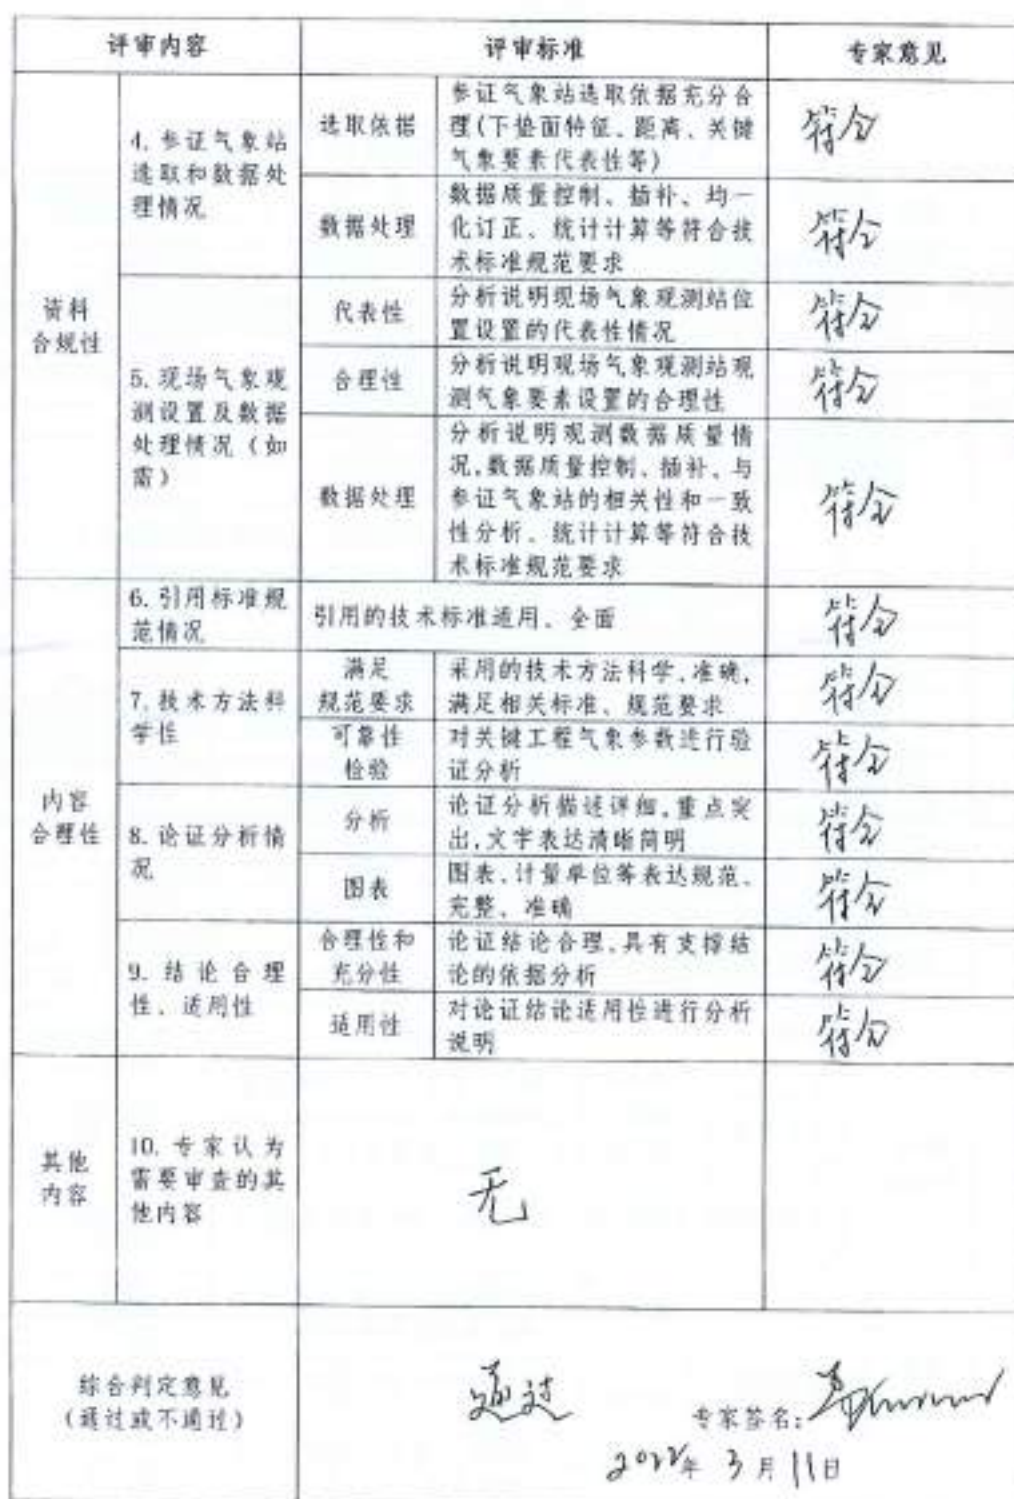 评审内容 评审标准 专家意见
资料
合规性
4. 参证气象站
选取和数据处
理情况
选取依据
参证气象站选取依据充分合
理(下垫面特征、距离、关键
气象要素代表性等)
符合
数据处理
数据质量控制、插补、均一
化订正、统计计算等符合技
术标准规范要求
符合
5. 现场气象观
测设置及数据
处理情况（如
需）
代表性
分析说明现场气象观测站位
置设置的代表性情况
符合
合理性
分析说明现场气象观测站观
测气象要素设置的合理性
符合
数据处理
分析说明观测数据质量情
况,数据质量控制、插补、与
参证气象站的相关性和一致
性分析、统计计算等符合技
术标准规范要求
符合
内容
合理性
6. 引用标准规
范情况
引用的技术标准适用、全面
符合
7. 技术方法科
学性
满足
规范要求
采用的技术方法科学、准确,
满足相关标准、规范要求
符合
可靠性
检验
对关键工程气象参数进行验
证分析
符合
8. 论证分析情
况
分析
论证分析描述详细,重点突
出,文字表达清晰简明
符合
图表
图表、计量单位等表达规范、
完整、准确
符合
9. 结论合理
性、适用性
合理性和
充分性
论证结论合理,具有支撑结
论的依据分析
符合
适用性
对论证结论适用性进行分析
说明
符合
其他
内容
10. 专家认为
需要审查的其
他内容
无
综合判定意见
(通过或不通过)
通过
专家签名:
2022年 3月11日